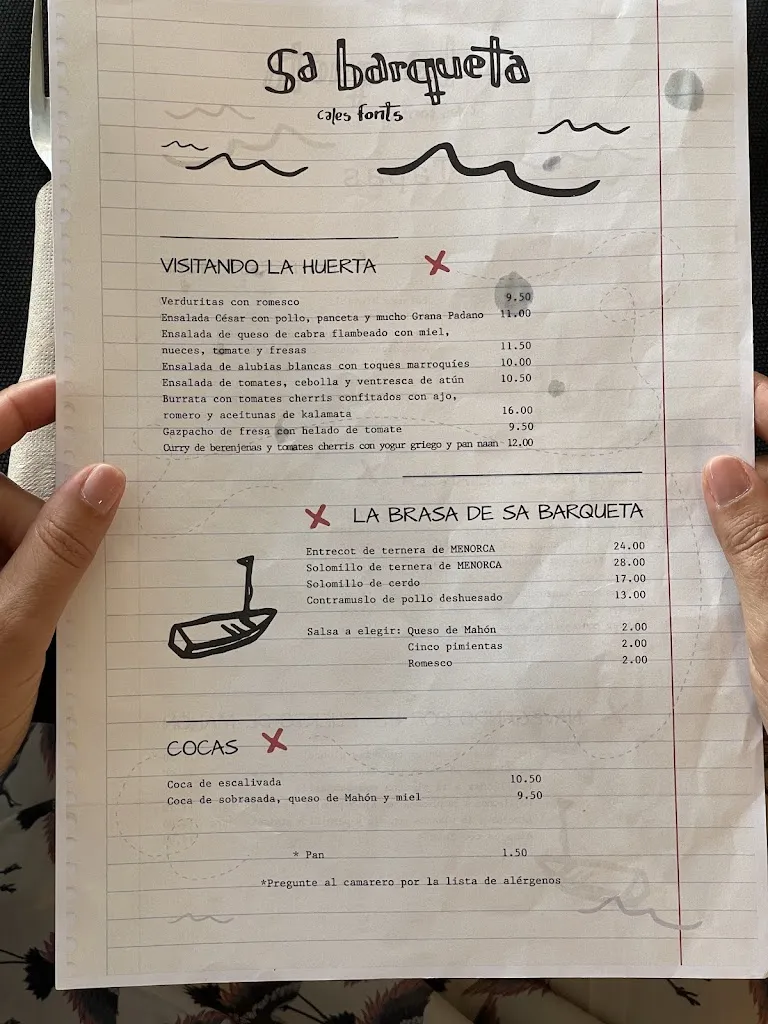 sa barqueta
cales fonts
VISITANDO LA HUERTA
Verduritas con romesco 9.50
Ensalada César con pollo, panceta y mucho Grana Padano 11.00
Ensalada de queso de cabra flambeado con miel,
nueces, tomate y fresas 11.50
Ensalada de alubias blancas con toques marroquíes 10.00
Ensalada de tomates, cebolla y ventresca de atún 10.50
Burrata con tomates cherris confitados con ajo,
romero y aceitunas de kalamata 16.00
Gazpacho de fresa con helado de tomate 9.50
Curry de berenjenas y tomates cherris con yogur griego y pan naan 12.00
LA BRASA DE SA BARQUETA
Entrecot de ternera de MENORCA 24.00
Solomillo de ternera de MENORCA 28.00
Solomillo de cerdo 17.00
Contramuslo de pollo deshuesado 13.00
Salsa a elegir: Queso de Mahón 2.00
Cinco pimientas 2.00
Romesco 2.00
COCAS
Coca de escalivada 10.50
Coca de sobrasada, queso de Mahón y miel 9.50
* Pan 1.50
*Pregunte al camarero por la lista de alérgenos